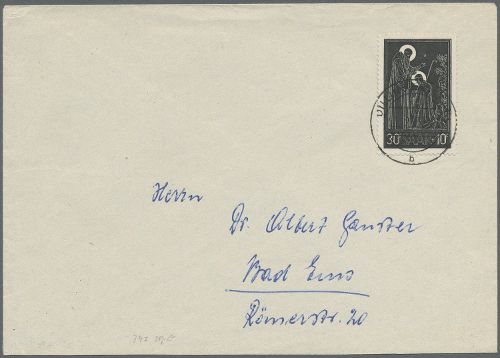 30 SAAR +10
b
Herrn
Dr. Albert Ganster
Bad Ems
Römerstr. 20